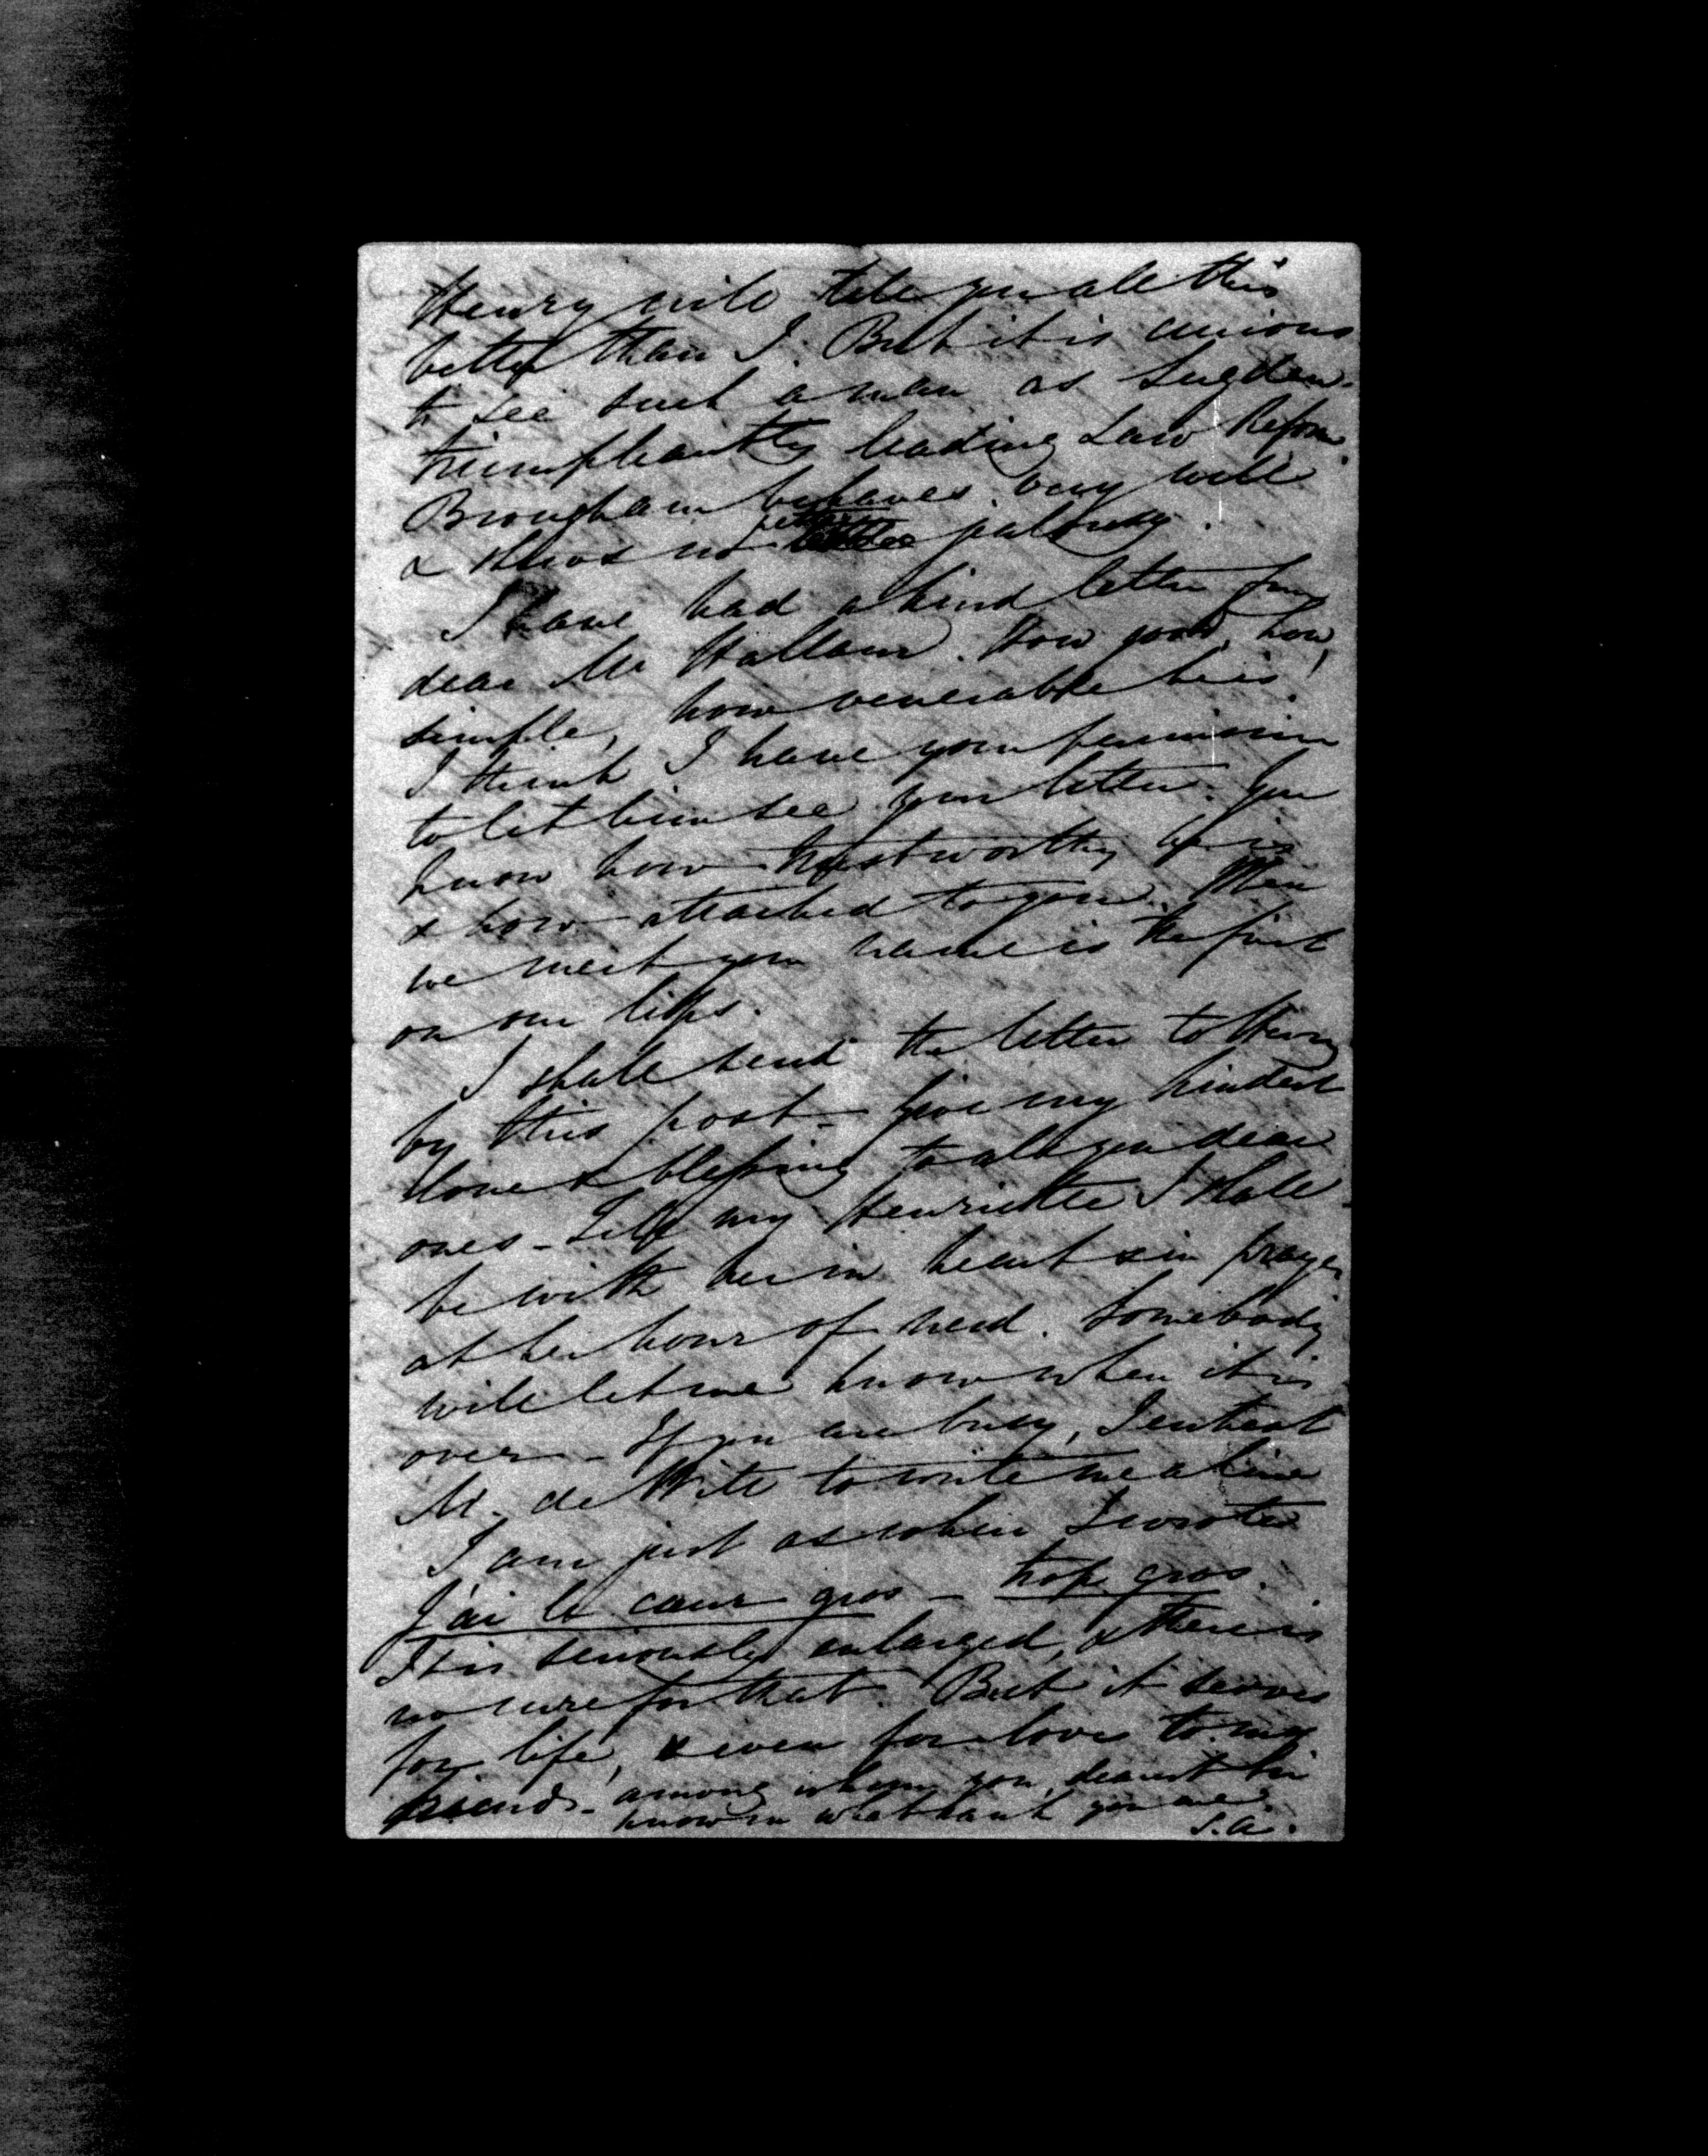 Henry will tell you all this
better than I. But it is curious
to see such a man as Sugden
triumphantly leading Law Reform.
Brougham behaves very well
& shows no petty jealousy.
I have had a kind letter from
dear Mr Hallam. How good, how
simple, how venerable he is.
I think I have your permission
to let him see your letter. You
know how trustworthy he is
& how attached to you. When
we meet your name is the first
on our lips.
I shall send the letter to Henry
by this post. Give my kindest
love & blessing to all you dear
ones - Tell my Henriette I shall
be with her in heart & in prayer
at her hour of need. Somebody
will let me know when it is
over - If you are busy, I entreat
M. de Witt to write me a line
I am just as when I wrote
J'ai le cœur gros - trop gros.
It is seriously enlarged, & there is
no cure for that. But it serves
for life, & even for love to my
friends - among whom you, dearest Sir
know in what rank you are.
S.A.